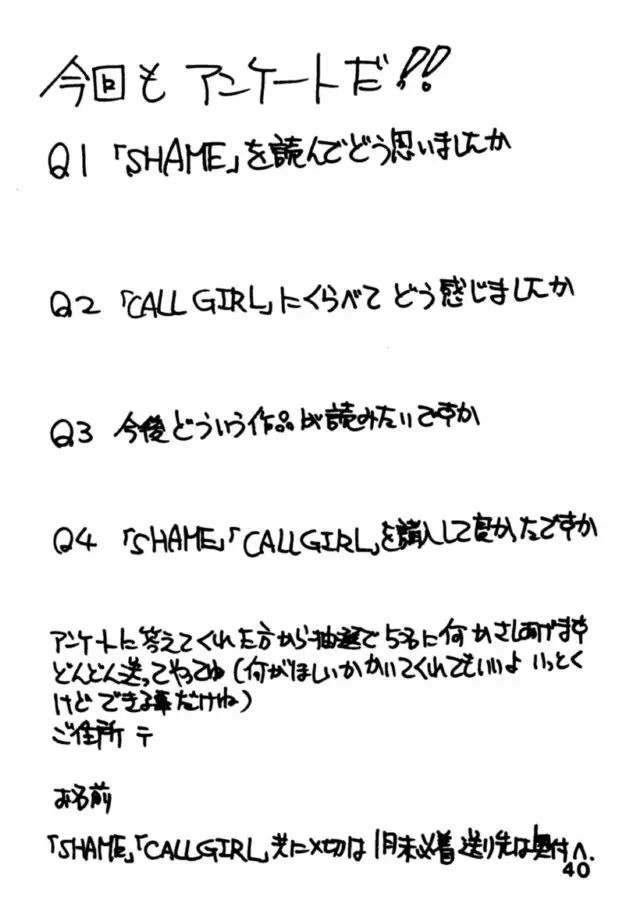 今回も アンケートだ!!
Q1 「SHAME」を読んでどう思いましたか
Q2 「CALL GIRL」にくらべて どう感じましたか
Q3 今後どういう作品が読みたいですか
Q4 「SHAME」「CALL GIRL」を購入して良かったですか
アンケートに答えてくれた方から抽選で5名に何かさしあげます
どんどん送ってやってね(何がほしいかかいてくれてもいいよ いっとく
けど できる事だけね)
ご住所 〒
お名前
「SHAME」「CALL GIRL」共に〆切は 1月末必着 送り先は奥付へ.
40